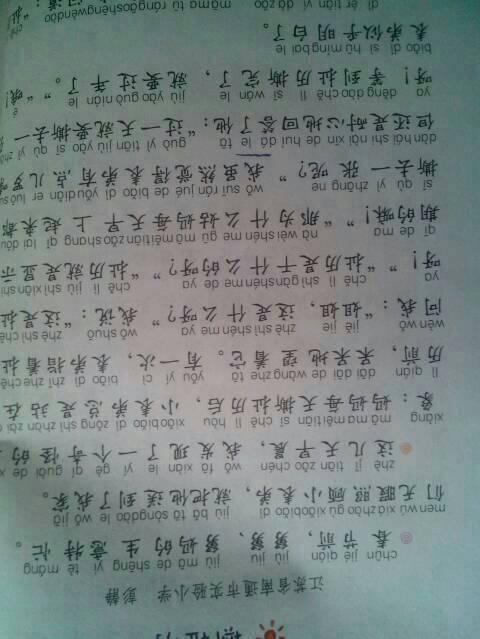 江苏省南通市实验小学 彭静
chūn jié qián jiù jiu jiù mā de shēng yì tè máng
春节前，舅舅、舅妈的生意特忙。
men wú xiá zhào gù xiǎo biǎo dì jiù bǎ tā sòng dào le wǒ jiā
们无暇照顾小表弟，就把他送到了我家。
zhè jǐ tiān zǎo chén wǒ fā xiàn le yí gè qí guài de
这几天早晨，我发现了一个奇怪的
xiàng mā ma měi tiān sī chě lì hòu xiǎo biǎo dì zǒng shì zhàn zài
象：妈妈每天撕扯历后，小表弟总是站在
lì qián dāi dāi de wàng zhe tā yǒu yí cì biǎo dì zhǐ zhe chě
历前，呆呆地望着它。有一次，表弟指着扯
wèn wǒ jiě jie zhè shì shén me ya wǒ shuō zhè shì chě
问我：“姐姐，这是什么呀？”我说：“这是扯
ya chě lì shì gàn shén me de ya chě lì jiù shì xiǎn shì
呀！”“扯历是干什么的呀？”“扯历就是显示
qī de ma nà wèi shén me gū mā měi tiān zǎo shang qǐ lái dōu
期的嘛！”“那为什么姑妈每天早上起来都
sī qù yì zhāng ne wǒ suī rán jué de biǎo dì yǒu diǎn er luō suō
撕去一张呢？”我虽然觉得表弟有点儿啰
dàn hái shi nài xīn de huí dá le tā guò yì tiān jiù yào sī qù yì
但还是耐心地回答了他：“过一天就要撕去一
ya děng dào chě lì sī wán le jiù yào guò nián le
呀！等到扯历撕完了，就要过年了。”“哦！”
biǎo dì sì hū míng bai le
表弟似乎明白了。